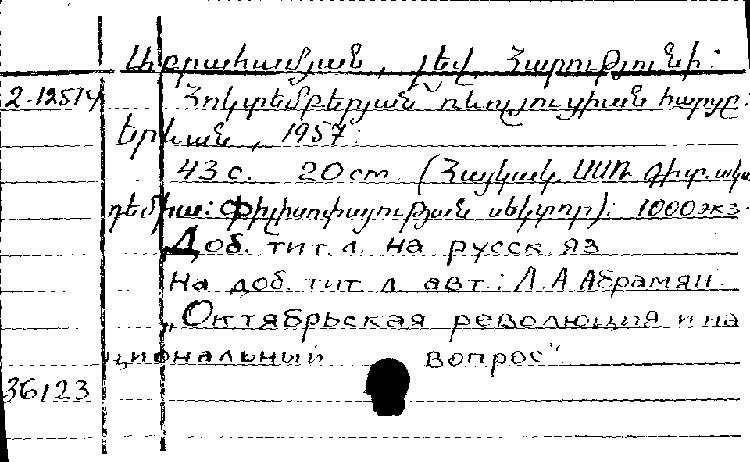 Աբրահամյան, Լև Հարությունի:
2-12514 Հոկտեմբերյան ռևոլյուցիան հարցը:
Երևան, 1957:
43 с. 20 cm (Հայկակ. ՍՍՌ Գիտ. ակա
դեմիա: Փիլիսոփայության սեկտոր): 1000 экз.
Доб. тит. л. на русск. яз
На доб. тит. л. авт.: Л. А. Абрамян
„Октябрьская революция и на
циональный вопрос"
36123